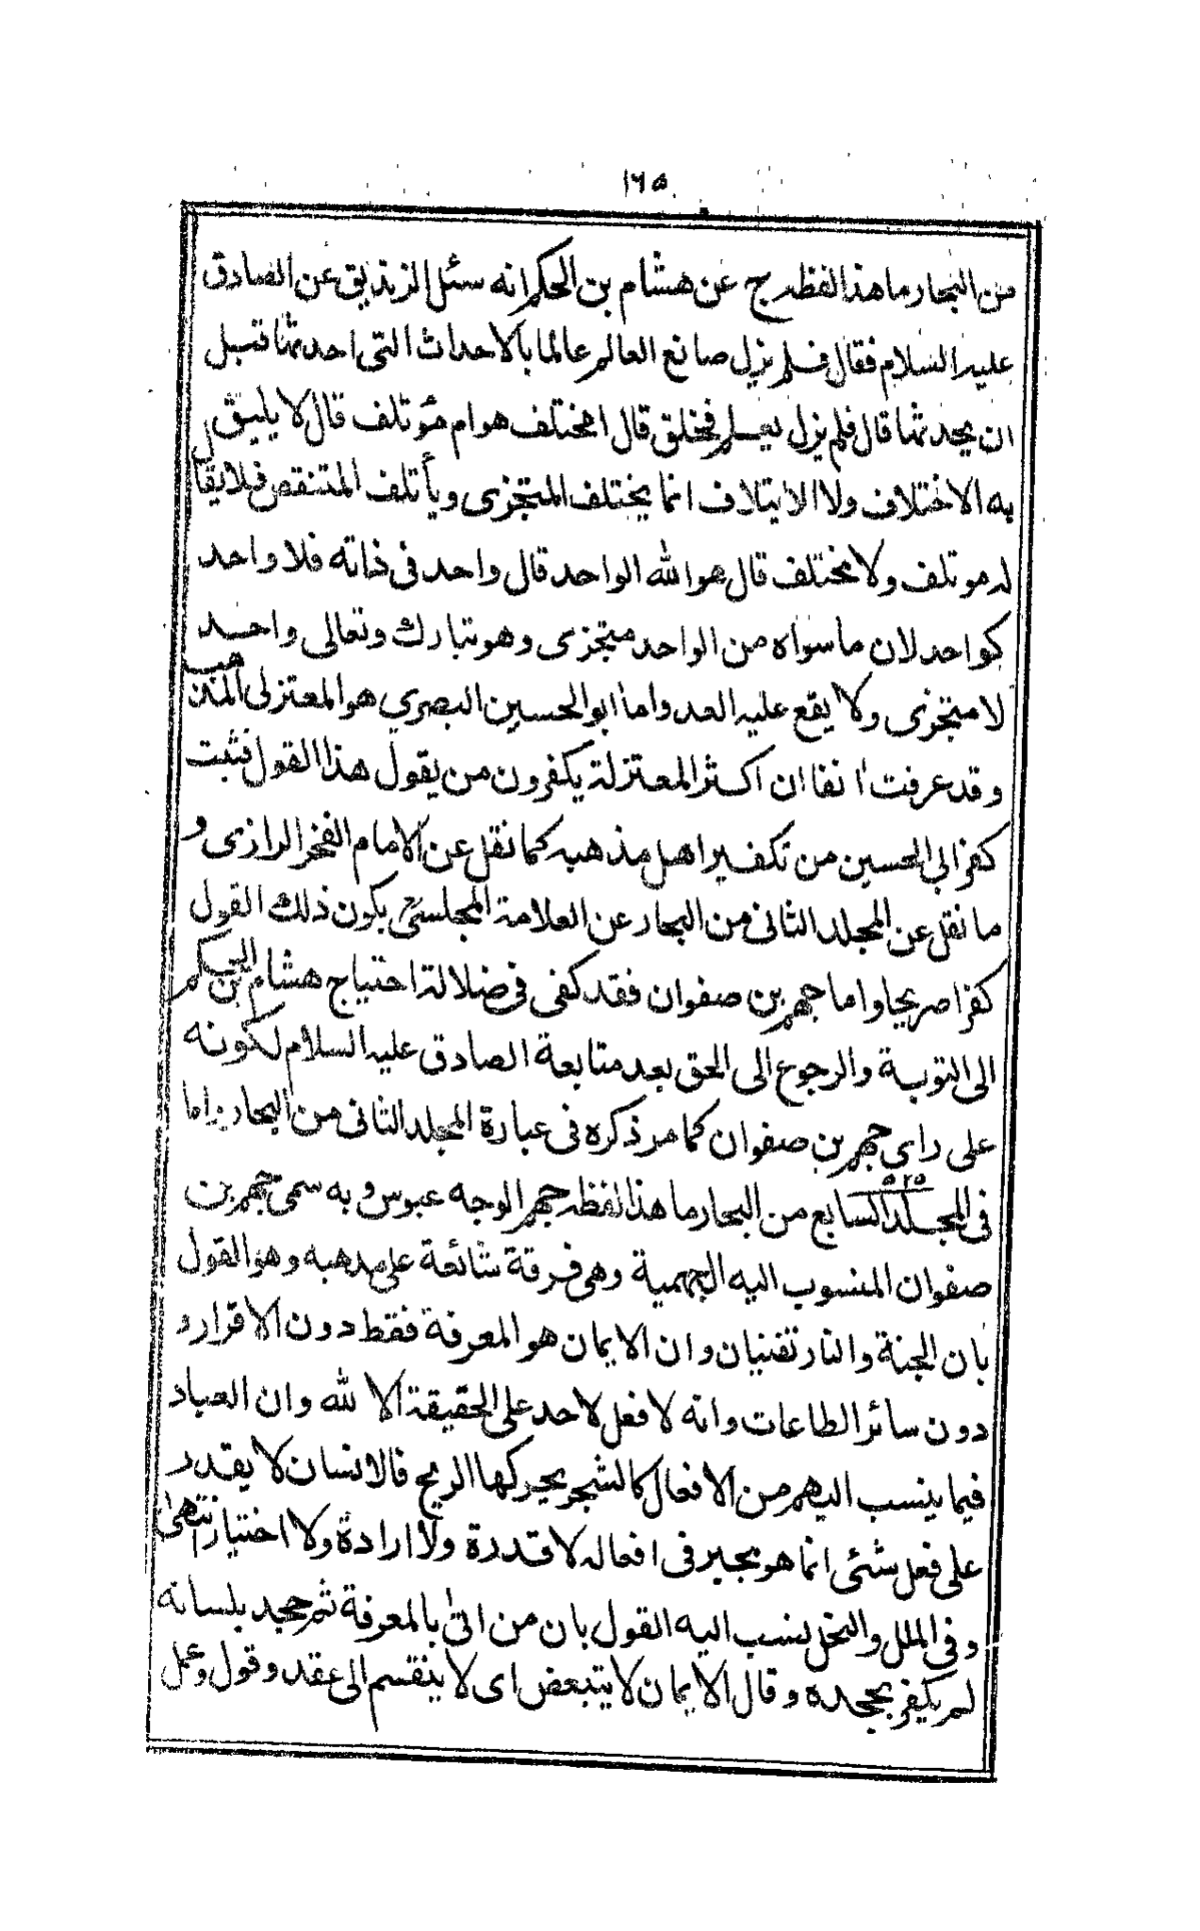 ١٦٥
من البحار ما هذا لفظه ج عن هشام بن الحكم انه سئل الزنديق عن الصادق
عليه السلام فقال فلم يزل صانع العالم عالما بالاحداث التى احدثها قبل
ان يحدثها قال فلم يزل يعلم فخلق قال امختلف هوام مؤتلف قال لا يليق
به الاختلاف ولا الايتلاف انما يختلف المتجزى ويأتلف المتنقص فلا يقال
له موتلف ولا مختلف قال هو الله الواحد قال واحد فى ذاته فلا واحد
كواحد لان ما سواه من الواحد متجزى وهو تبارك وتعالى واحد
لا متجزى ولا يقع عليه العد واما ابو الحسين البصري هو المعتزلى المذهب
وقد عرفت انفا ان اكثر المعتزلة يكفرون من يقول هذا القول فثبت
كفر ابي الحسين من تكفير اهل مذهبه كما نقل عن الامام الفخر الرازى و
ما نقل عن المجلد الثانى من البحار عن العلامة المجلسى يكون ذلك القول
كفرا صريحا واما جهم بن صفوان فقد كفى فى ضلالة احتياج هشام بن الحكم
الى التوبة والرجوع الى الحق بعد متابعة الصادق عليه السلام لكونه
على راي جهم بن صفوان كما مر ذكره فى عبارة المجلد الثانى من البحار واما
فى المجلد السابع من البحار ما هذا لفظه جهم الوجه عبوس و به سمى جهم بن
٥٢٥
صفوان المنسوب اليه الجهمية وهى فرقة شائعة على مذهبه وهو القول
بان الجنة والنار تفنيان وان الايمان هو المعرفة فقط دون الاقرار و
دون سائر الطاعات وانه لا فعل لاحد على الحقيقة الا لله وان العباد
فيما ينسب اليهم من الافعال كالشجر يحركها الريح فالانسان لا يقدر
على فعل شئى انما هو مجبر فى افعاله لا قدرة ولا ارادة ولا اختيار انتهى
وفى الملل والنحل نسب اليه القول بان من اتى بالمعرفة ثم جحد بلسانه
لم يكفر بجحده وقال الايمان لا يتبعض اى لا ينقسم الى عقد وقول وعمل